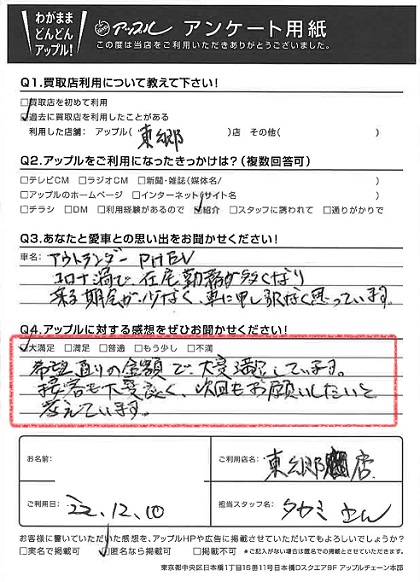 わがまま
どんどん
アップル！
アップル アンケート用紙
この度は当店をご利用いただきありがとうございました。
Q1.買取店利用について教えて下さい！
□買取店を初めて利用
☑過去に買取店を利用したことがある
利用した店舗： アップル( 東郷 )店 その他( )
Q2.アップルをご利用になったきっかけは？(複数回答可)
□テレビCM □ラジオCM □新聞・雑誌(媒体名/ )
□アップルのホームページ □インターネット(サイト名 )
□チラシ □DM □利用経験があるので ☑紹介 □スタッフに誘われて □通りがかりで
Q3.あなたと愛車との思い出をお聞かせください！
車名： アウトランダー PHEV
コロナ渦で、在宅勤務が多くなり
乗る機会が少なく、車に申し訳なく思っています。
Q4.アップルに対する感想をぜひお聞かせください！
☑大満足 □満足 □普通 □もう少し □不満
希望通りの金額で、大変満足しています。
接客も大変良く、次回もお願いしたいと
考えています。
お名前：
ご利用店名： 東郷 店
ご利用日： 22.12.10
担当スタッフ名： タカミ さん
お客様に書いていただいた感想を、アップルHPや広告に掲載させていただいてもよろしいでしょうか？
□実名で掲載可 ☑匿名なら掲載可 □掲載不可 *ご記入がない場合は匿名での掲載とさせていただきます。
東京都中央区日本橋1丁目16番11号日本橋Dスクエア9F アップルチェーン本部